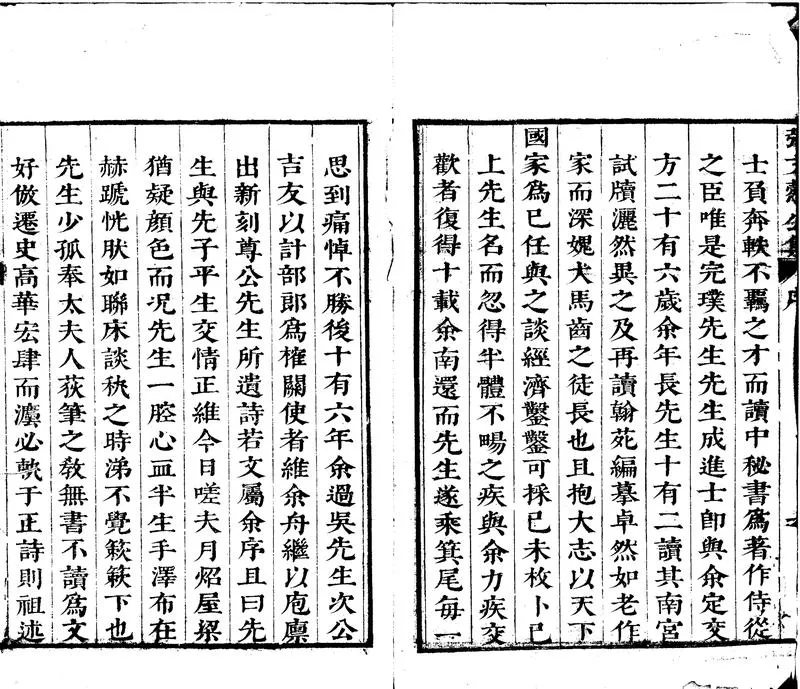 士負奔軼不羈之才而讀中秘書爲著作侍從
之臣唯是完璞先生先生成進士卽與余定交
方二十有六歲余年長先生十有二讀其南宮
試牘灑然異之及再讀翰苑編摹卓然如老作
家而深媿犬馬齒之徒長也且抱大志以天下
國家爲已任與之談經濟鑿鑿可採已未枚卜已
上先生名而忽得半體不暢之疾與余力疾交
歡者復得十載余南還而先生遂乘箕尾每一
思到痛悼不勝後十有六年余過吳先生次公
吉友以計部郎爲榷關使者維余舟繼以庖廩
出新刻尊公先生所遺詩若文屬余序且曰先
生與先子平生交情正維今日嗟夫月炤屋梁
猶疑顏色而况先生一腔心血半生手澤布在
赫蹏恍肰如聯床談秇之時涕不覺簌簌下也
先生少孤奉太夫人荻筆之敎無書不讀爲文
好倣遷史高華宏肆而瀠必蓺于正詩則祖述